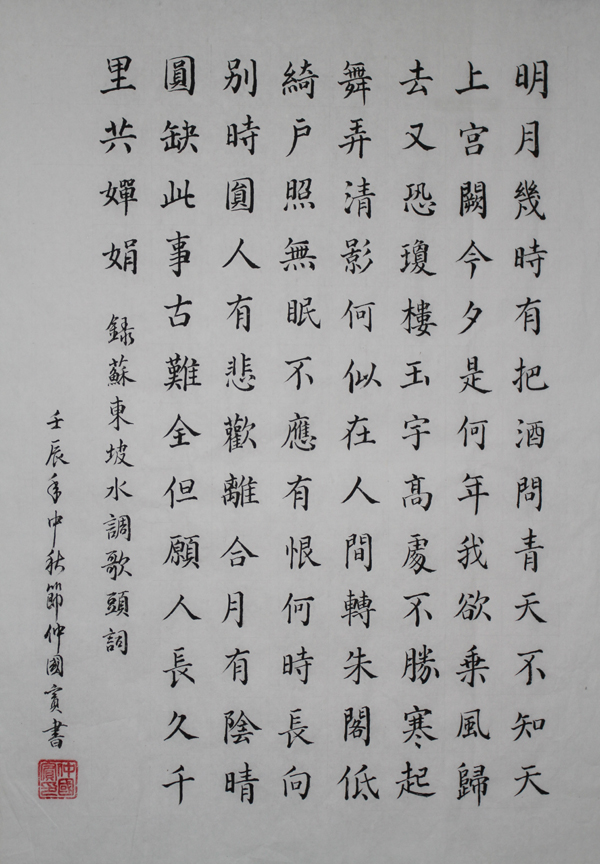 明月幾時有把酒問青天不知天
上宮闕今夕是何年我欲乘風歸
去又恐瓊樓玉宇高處不勝寒起
舞弄清影何似在人間轉朱閣低
綺戶照無眠不應有恨何時長向
別時圓人有悲歡離合月有陰晴
圓缺此事古難全但願人長久千
里共嬋娟 錄蘇東坡水調歌頭詞
壬辰年中秋節仲國賓書
仲國賓印